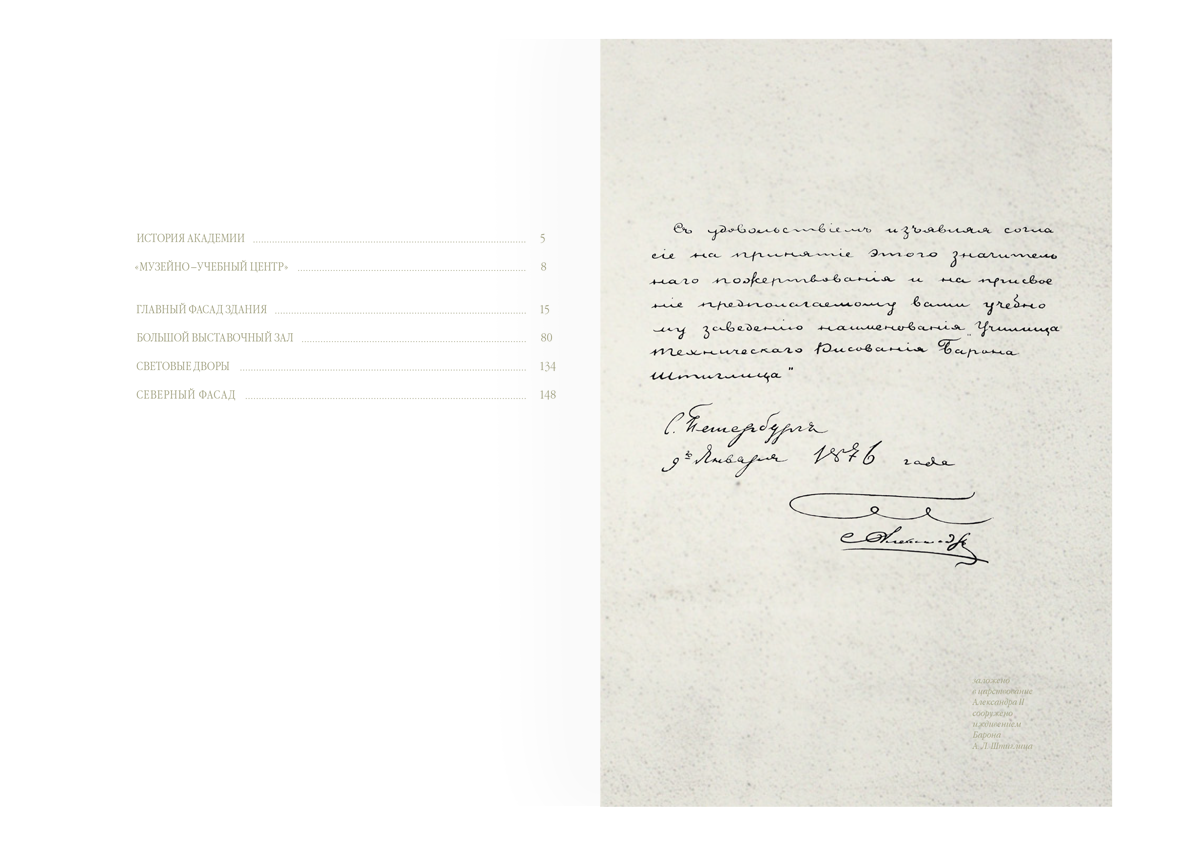 ИСТОРИЯ АКАДЕМИИ 5
«МУЗЕЙНО–УЧЕБНЫЙ ЦЕНТР» 8
ГЛАВНЫЙ ФАСАД ЗДАНИЯ 15
БОЛЬШОЙ ВЫСТАВОЧНЫЙ ЗАЛ 80
СВЕТОВЫЕ ДВОРЫ 134
СЕВЕРНЫЙ ФАСАД 148
Съ удовольствіемъ изъявляя согла
сіе на принятіе этого значитель
наго пожертвованія и на присвое
ніе предполагаемому вами учебно
му заведенію наименованія „Училища
Техническаго Рисованія Барона
Штиглица"
С. Петербургъ
9го Января 1876 года
Александръ
заложено
в царствование
Александра II
сооружено
иждивением
Барона
А.Л.Штиглица